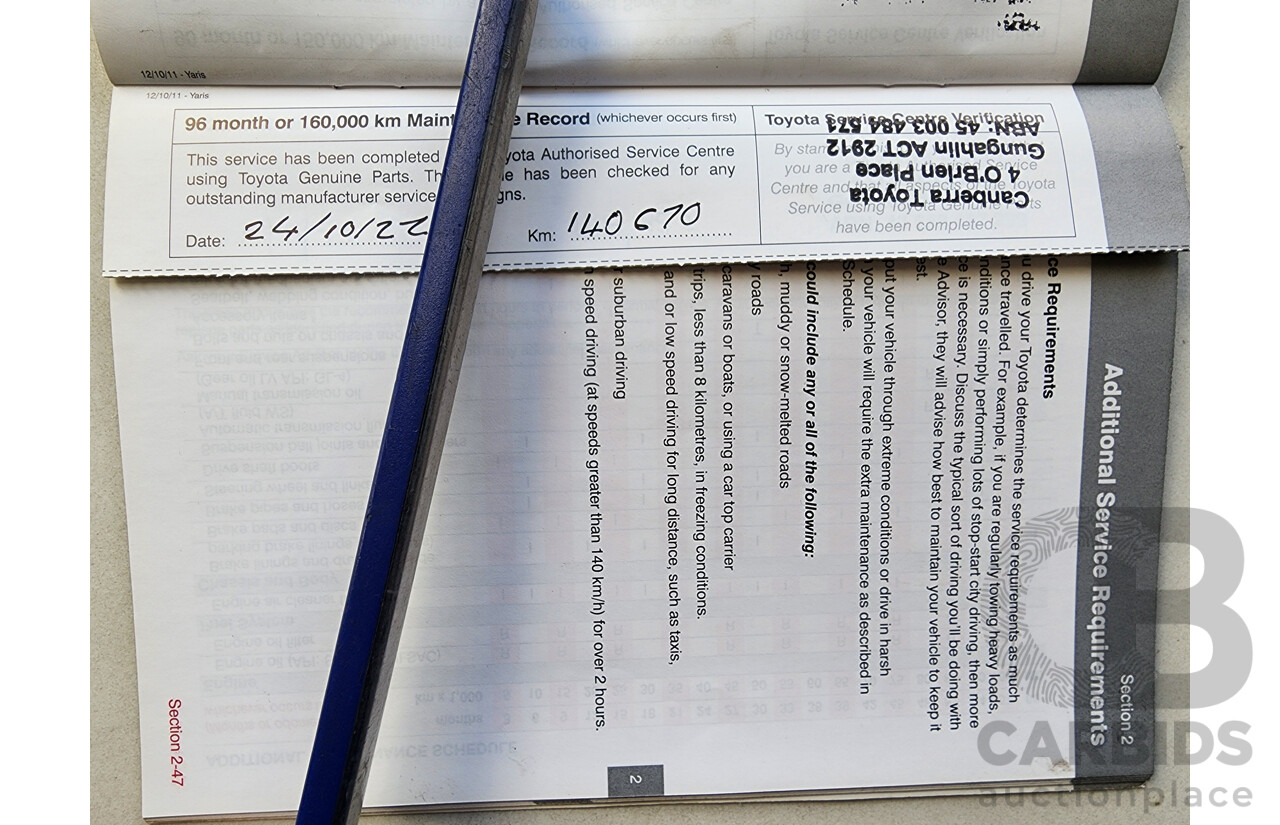 12/10/11 - Yaris
12/10/11 - Yaris
96 month or 160,000 km Maint e Record (whichever occurs first)
This service has been completed yota Authorised Service Centre
using Toyota Genuine Parts. Th le has been checked for any
outstanding manufacturer service gns.
Date: 24/10/22
Km: 140670
Toyota Service Centre Verification
By stam
you are a Authorised Service
Centre and that all aspects of the Toyota
Service using Toyota Genuine Parts
have been completed.
Canberra Toyota
4 O'Brien Place
Gungahlin ACT 2912
ABN: 45 003 484 571
Section 2
Additional Service Requirements
ce Requirements
u drive your Toyota determines the service requirements as much
nce travelled. For example, if you are regularly towing heavy loads,
nditions or simply performing lots of stop-start city driving, then more
ce is necessary. Discuss the typical sort of driving you'll be doing with
e Advisor, they will advise how best to maintain your vehicle to keep it
est.
put your vehicle through extreme conditions or drive in harsh
your vehicle will require the extra maintenance as described in
Schedule.
could include any or all of the following:
h, muddy or snow-melted roads
y roads
caravans or boats, or using a car top carrier
trips, less than 8 kilometres, in freezing conditions.
and or low speed driving for long distance, such as taxis,
r suburban driving
h speed driving (at speeds greater than 140 km/h) for over 2 hours.
2
Section 2-47
CB
CARBIDS
auctionplace